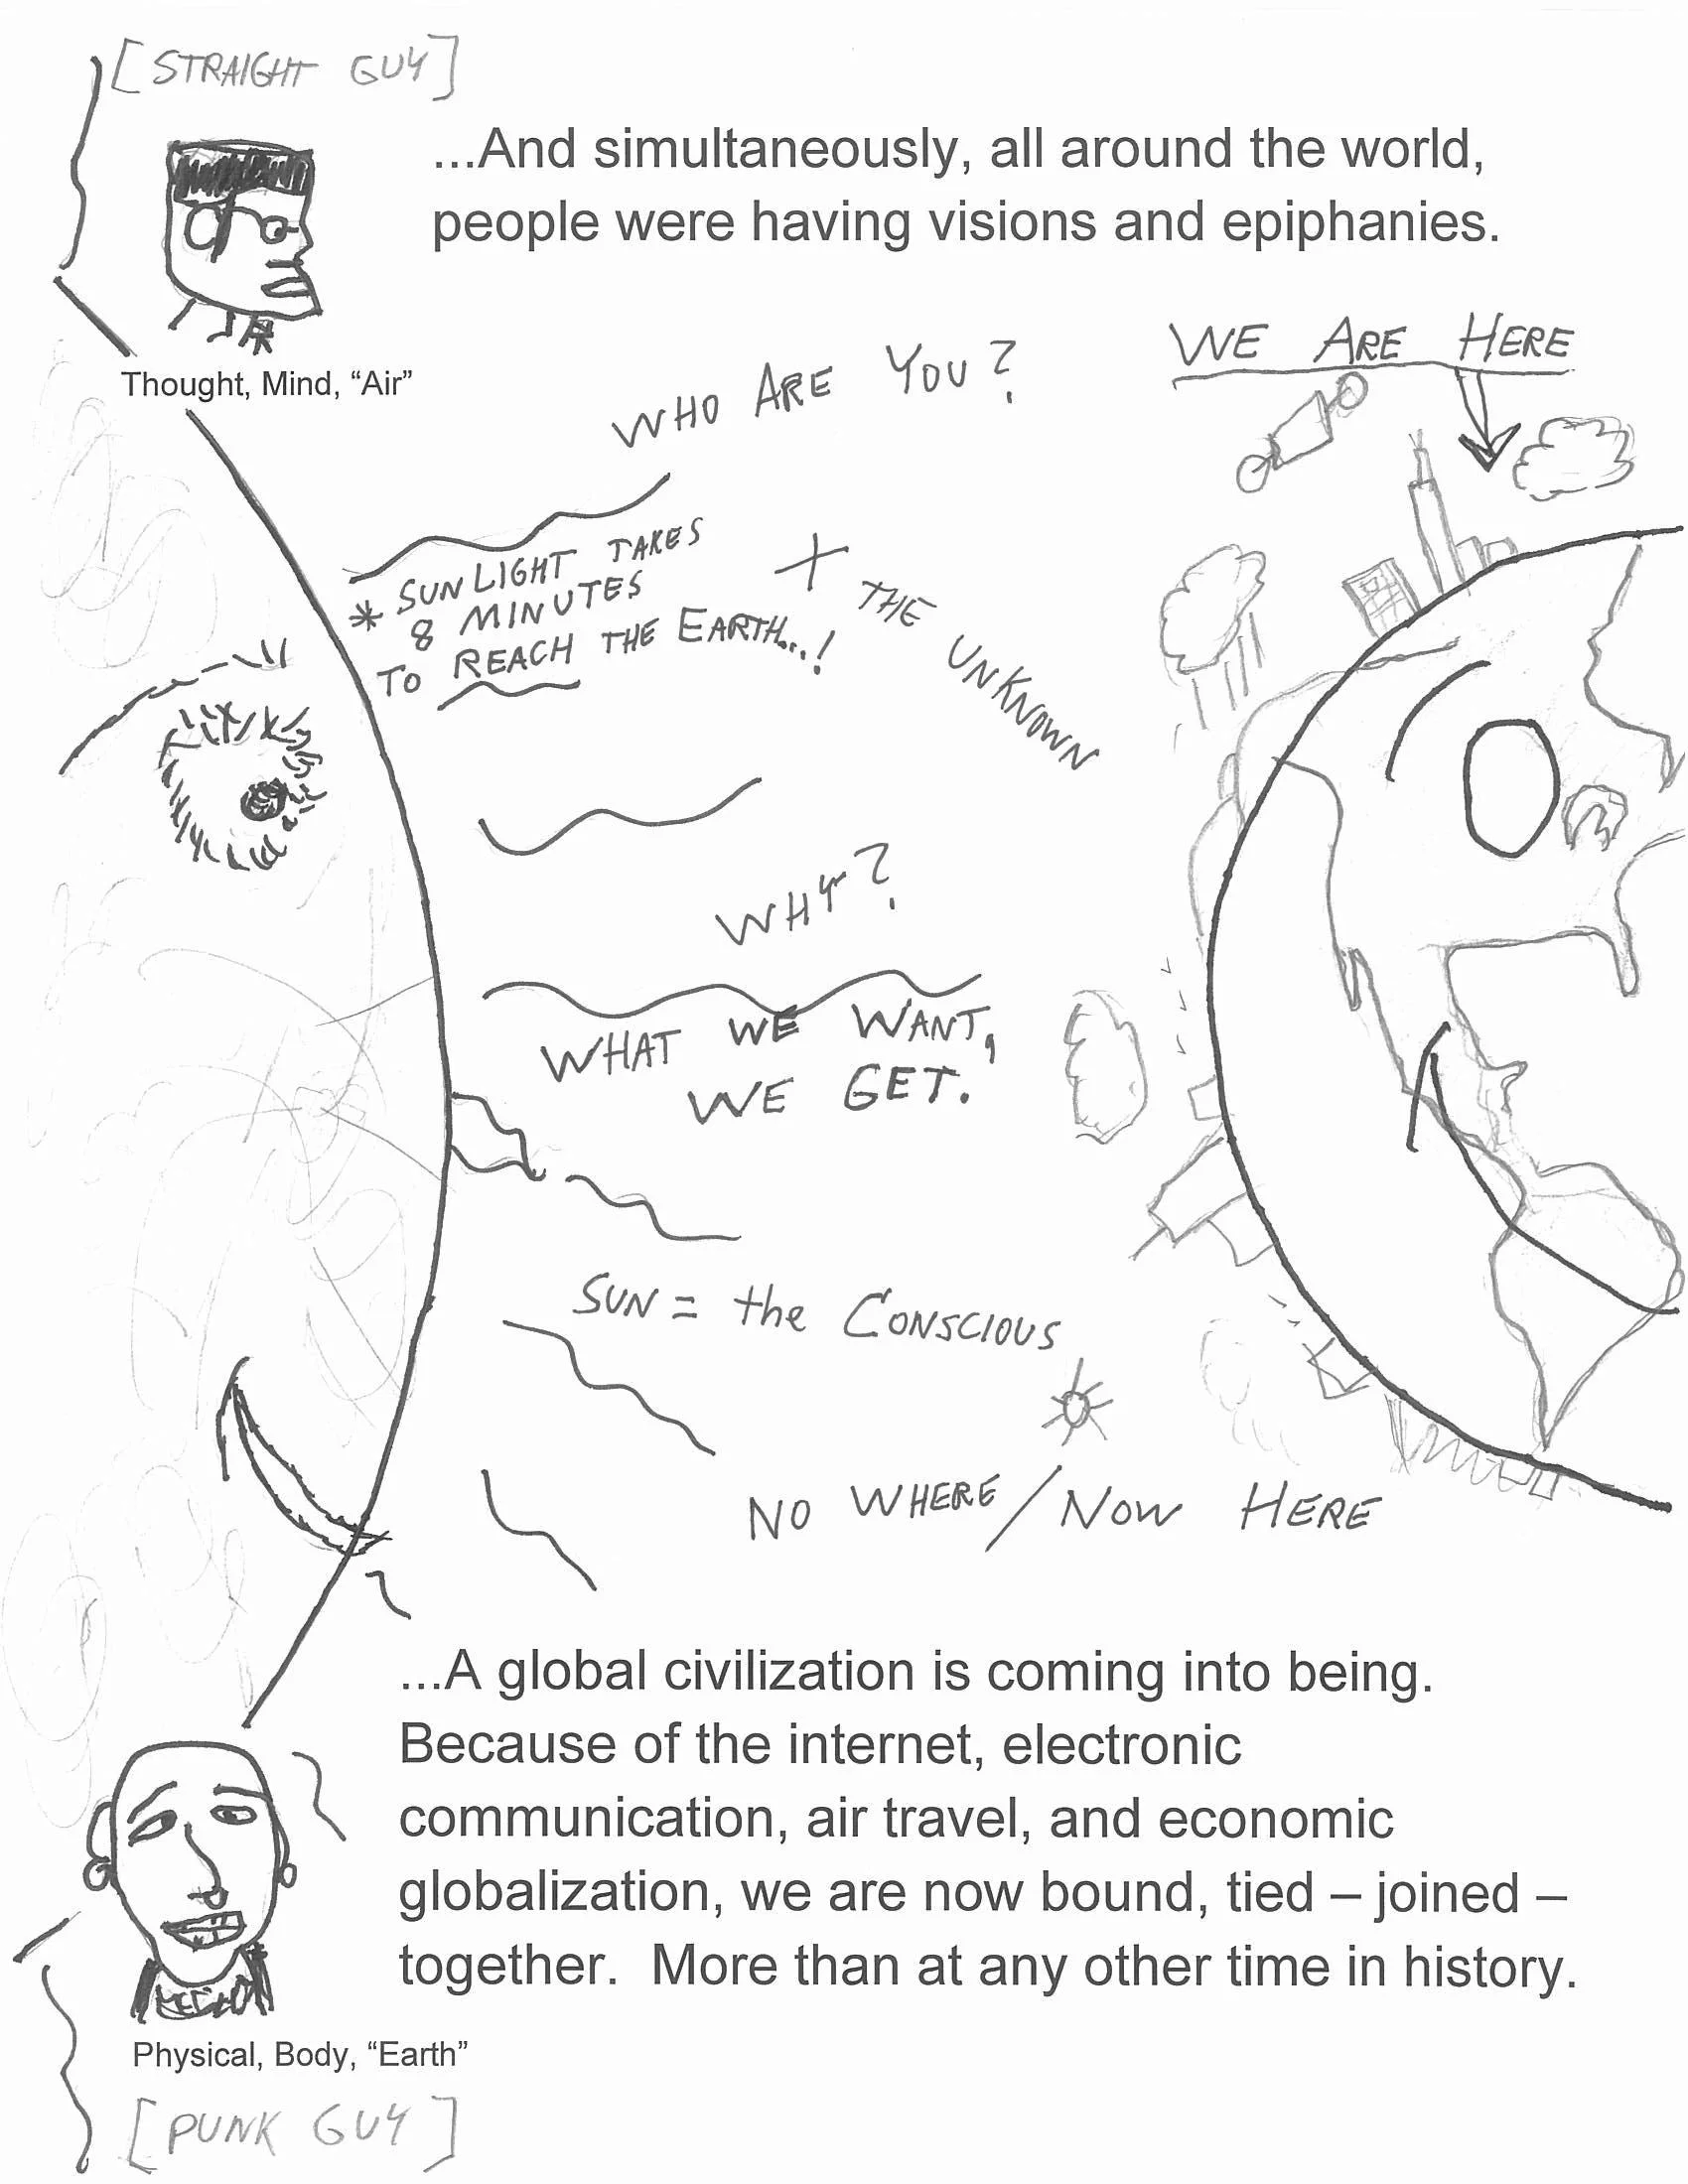 [STRAIGHT GUY]
...And simultaneously, all around the world,
people were having visions and epiphanies.
Thought, Mind, “Air”
WHO ARE YOU?
WE ARE HERE
* SUNLIGHT TAKES
8 MINUTES
TO REACH THE EARTH...!
+ THE UNKNOWN
WHY?
WHAT WE WANT,
WE GET.
SUN = the CONSCIOUS
NO WHERE / NOW HERE
...A global civilization is coming into being.
Because of the internet, electronic
communication, air travel, and economic
globalization, we are now bound, tied – joined –
together.  More than at any other time in history.
Physical, Body, “Earth”
[PUNK GUY]